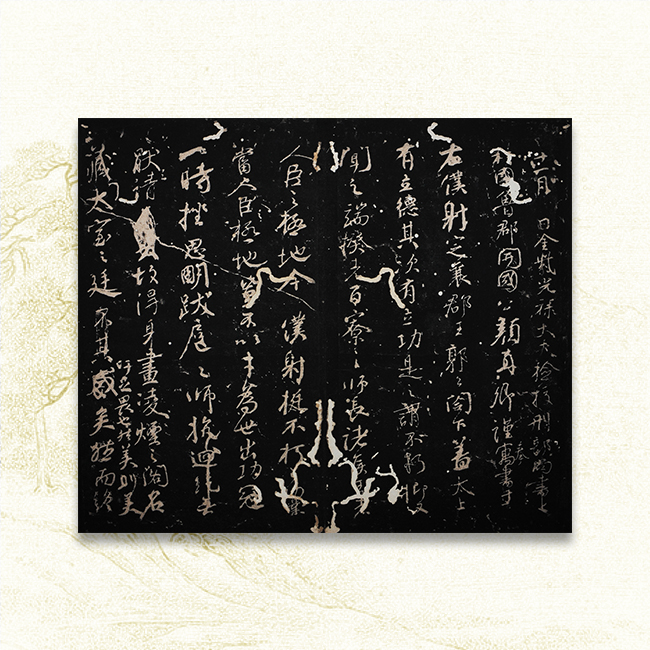 月 日金紫光祿大夫檢校刑部尚書上
柱國魯郡開國公顏真卿謹奉寓書于
右僕射定襄郡王郭公閤下蓋太上
有立德其次有立功是之謂不朽抑又
聞之端揆者百寮之師長諸
人臣之極地今僕射挺不朽業
當人臣極地豈不以才為世出功冠
一時挫思明跋扈之師抗迴紇無
猒之請故得身畫凌煙之閣名
藏太室之廷其盛矣然而終
吁足畏也然美則美